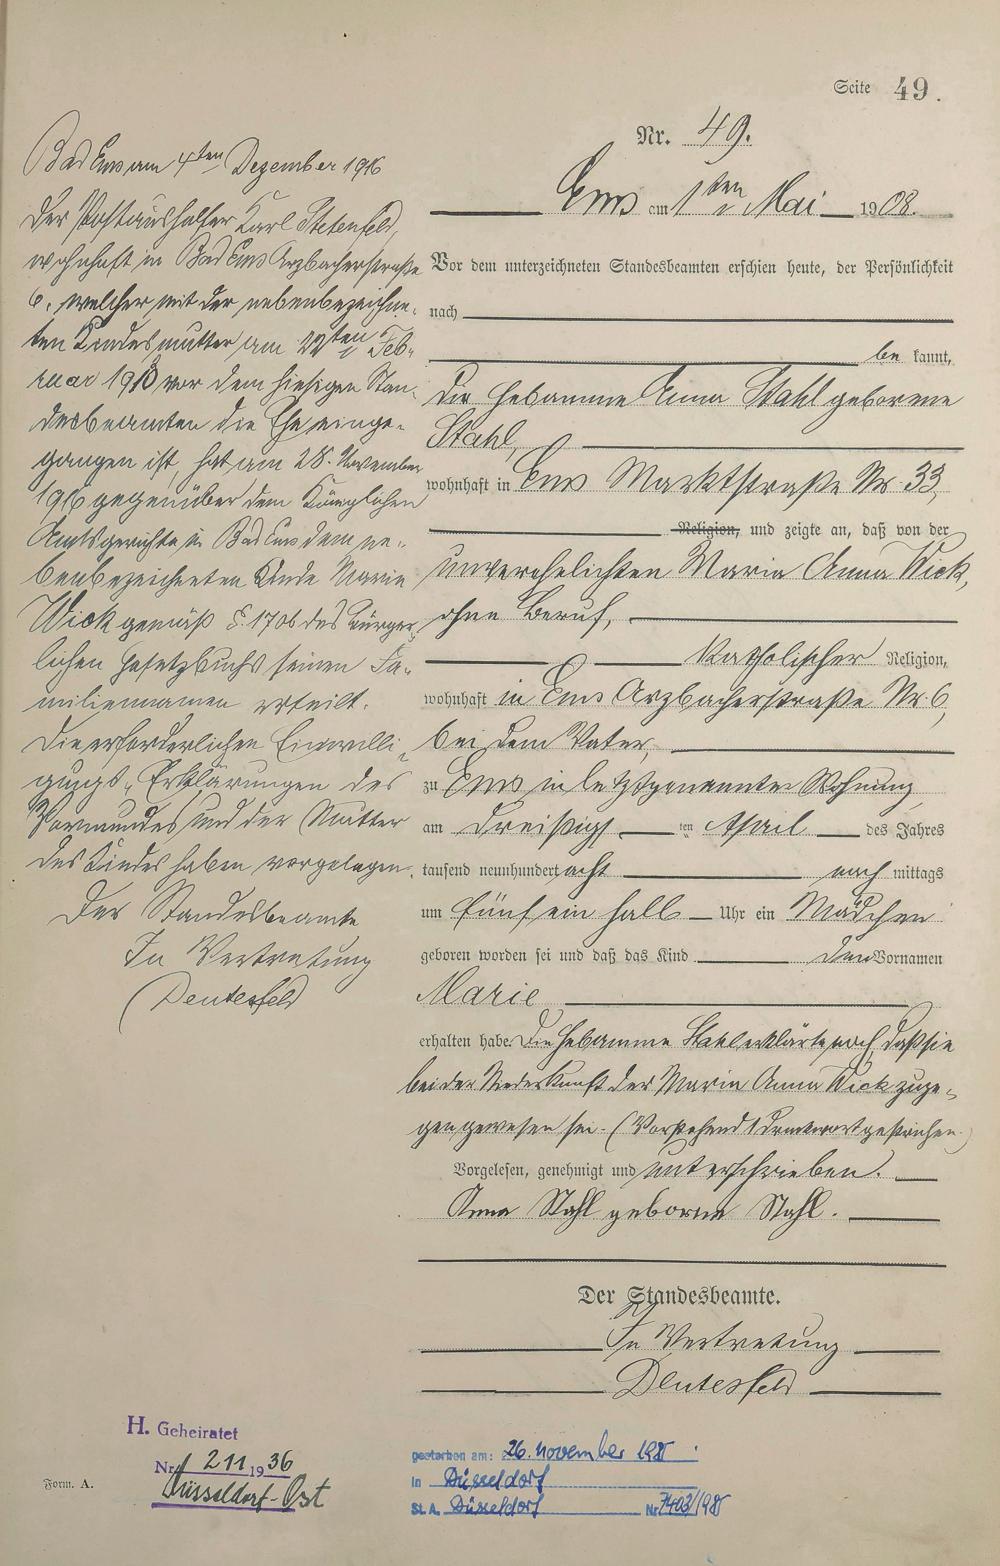 Seite 49.
Nr. 49.
Ems am 1ten Mai 1908.
Vor dem unterzeichneten Standesbeamten erschien heute, der Persönlichkeit
nach
be kannt,
die Hebamme Anna Stahl geborene
Stahl,
wohnhaft in Ems Marktstraße Nr 33,
Religion, und zeigte an, daß von der
unverehelichten Maria Anna Wick,
ohne Beruf,
katholischer Religion,
wohnhaft in Ems Arzbacherstraße Nr. 6,
bei dem Vater,
zu Ems in letztgenannter Wohnung
am dreißigsten April des Jahres
tausend neunhundert acht nach mittags
um fünf ein halb Uhr ein Mädchen
geboren worden sei und daß das Kind den Vornamen
Marie
erhalten habe. Die Hebamme Stahl erklärte noch, daß sie
bei der Niederkunft der Maria Anna Wick zuge-
gen gewesen sei. (Vorstehend 1 Druckwort gestrichen.)
Vorgelesen, genehmigt und unterschrieben.
Anna Stahl geborene Stahl.
Der Standesbeamte.
In Vertretung
Deutesfeld
Bad Ems am 4ten Dezember 1916
Der Postaushelfer Karl Stetenfeld,
wohnhaft in Bad Ems Arzbacherstraße
6, welcher mit der nebenbezeichne-
ten Kindesmutter am 22ten Feb-
ruar vor dem hiesigen Stan-
desbeamten die Ehe einge-
gangen ist, hat am 28. November
1916 gegenüber dem Königlichen
Amtsgerichte in Bad Ems dem ne-
benbezeichneten Kinde Marie
Wick gemäß §. 1706 des Bürger-
lichen Gesetzbuchs seinen Fa-
miliennamen erteilt.
Die erforderlichen Einwilli-
gungs-Erklärungen des
Vormundes und der Mutter
des Kindes haben vorgelegen.
Der Standesbeamte
In Vertretung
Deutesfeld
H. Geheiratet
Nr. 211 1936
Düsseldorf-Ost
Form. A.
gestorben am: 26. November
in Düsseldorf
St. A. Düsseldorf Nr 7403/